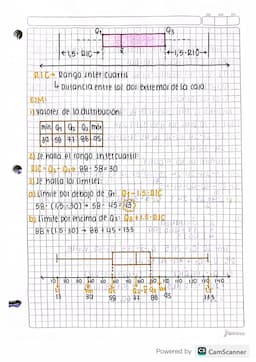 Q1 Q3
1,5·RIC 1,5·RIC
RIC → Rango intercuartil
↳ Distancia entre los dos extremos de la caja
1) Valores de la distribución:
min Q1 Q2 Q3 máx
58 77 88 95
2) Se halla el rango intercuartil:
RIC = Q3 - Q1 → 88 - 58 = 30
3) Se halla los límites:
a) Límite por debajo de Q1: Q1 - 1,5·RIC
58 - (1,5·30) → 58 - 45 = 13
b) Límite por encima de Q3: Q3 + 1,5·RIC
88 + (1,5·30) → 88 + 45 = 133
13 58 77 88 95 133
Powered by CS CamScanner